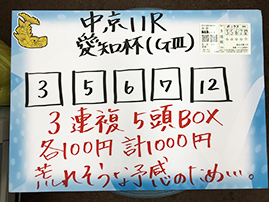 中京11R
愛知杯(GⅢ)
3 5 6 7 12
3連複5頭BOX
各100円 計1000円
荒れそうな予感のため…。